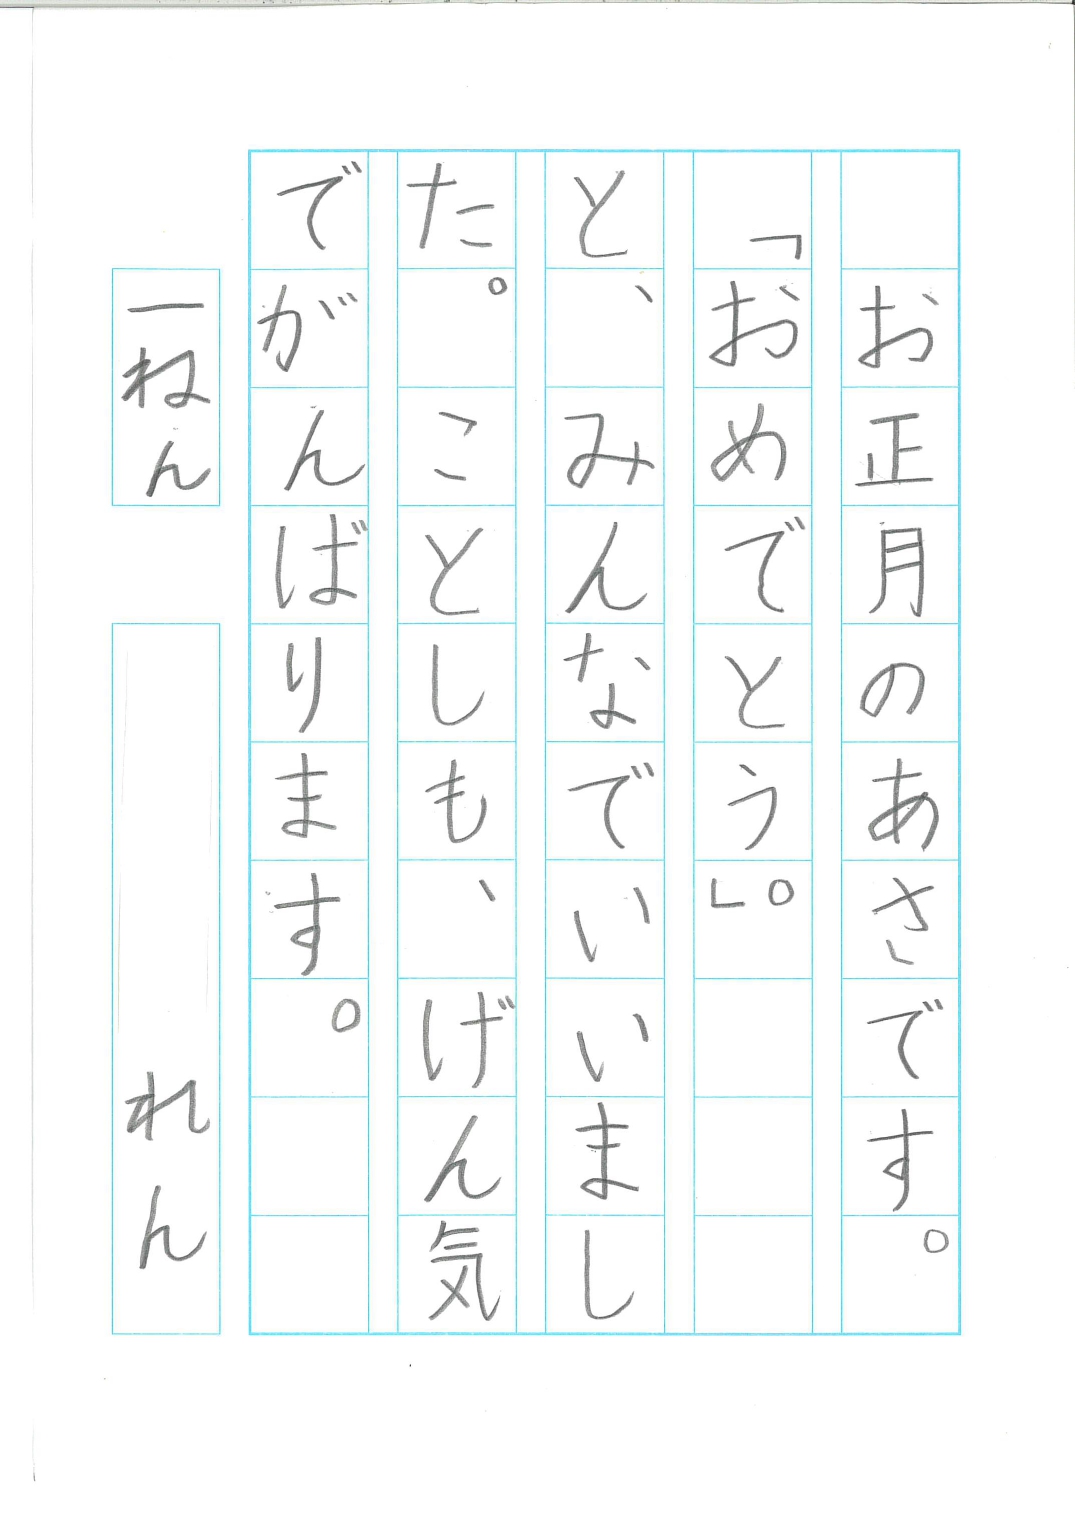 お正月のあさです。
「おめでとう。」
と、みんなでいいまし
た。ことしも、げん気
でがんばります。
一ねん　れん